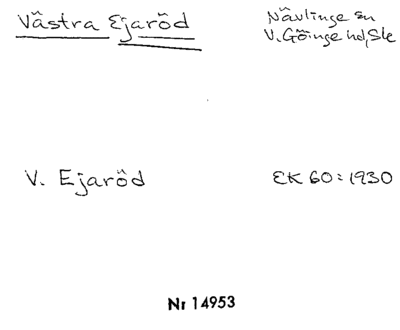 Västra Ejaröd
Nävlinge sn
V. Göinge hd, Sk
V. Ejaröd
EK 60: 1930
Nr 14953